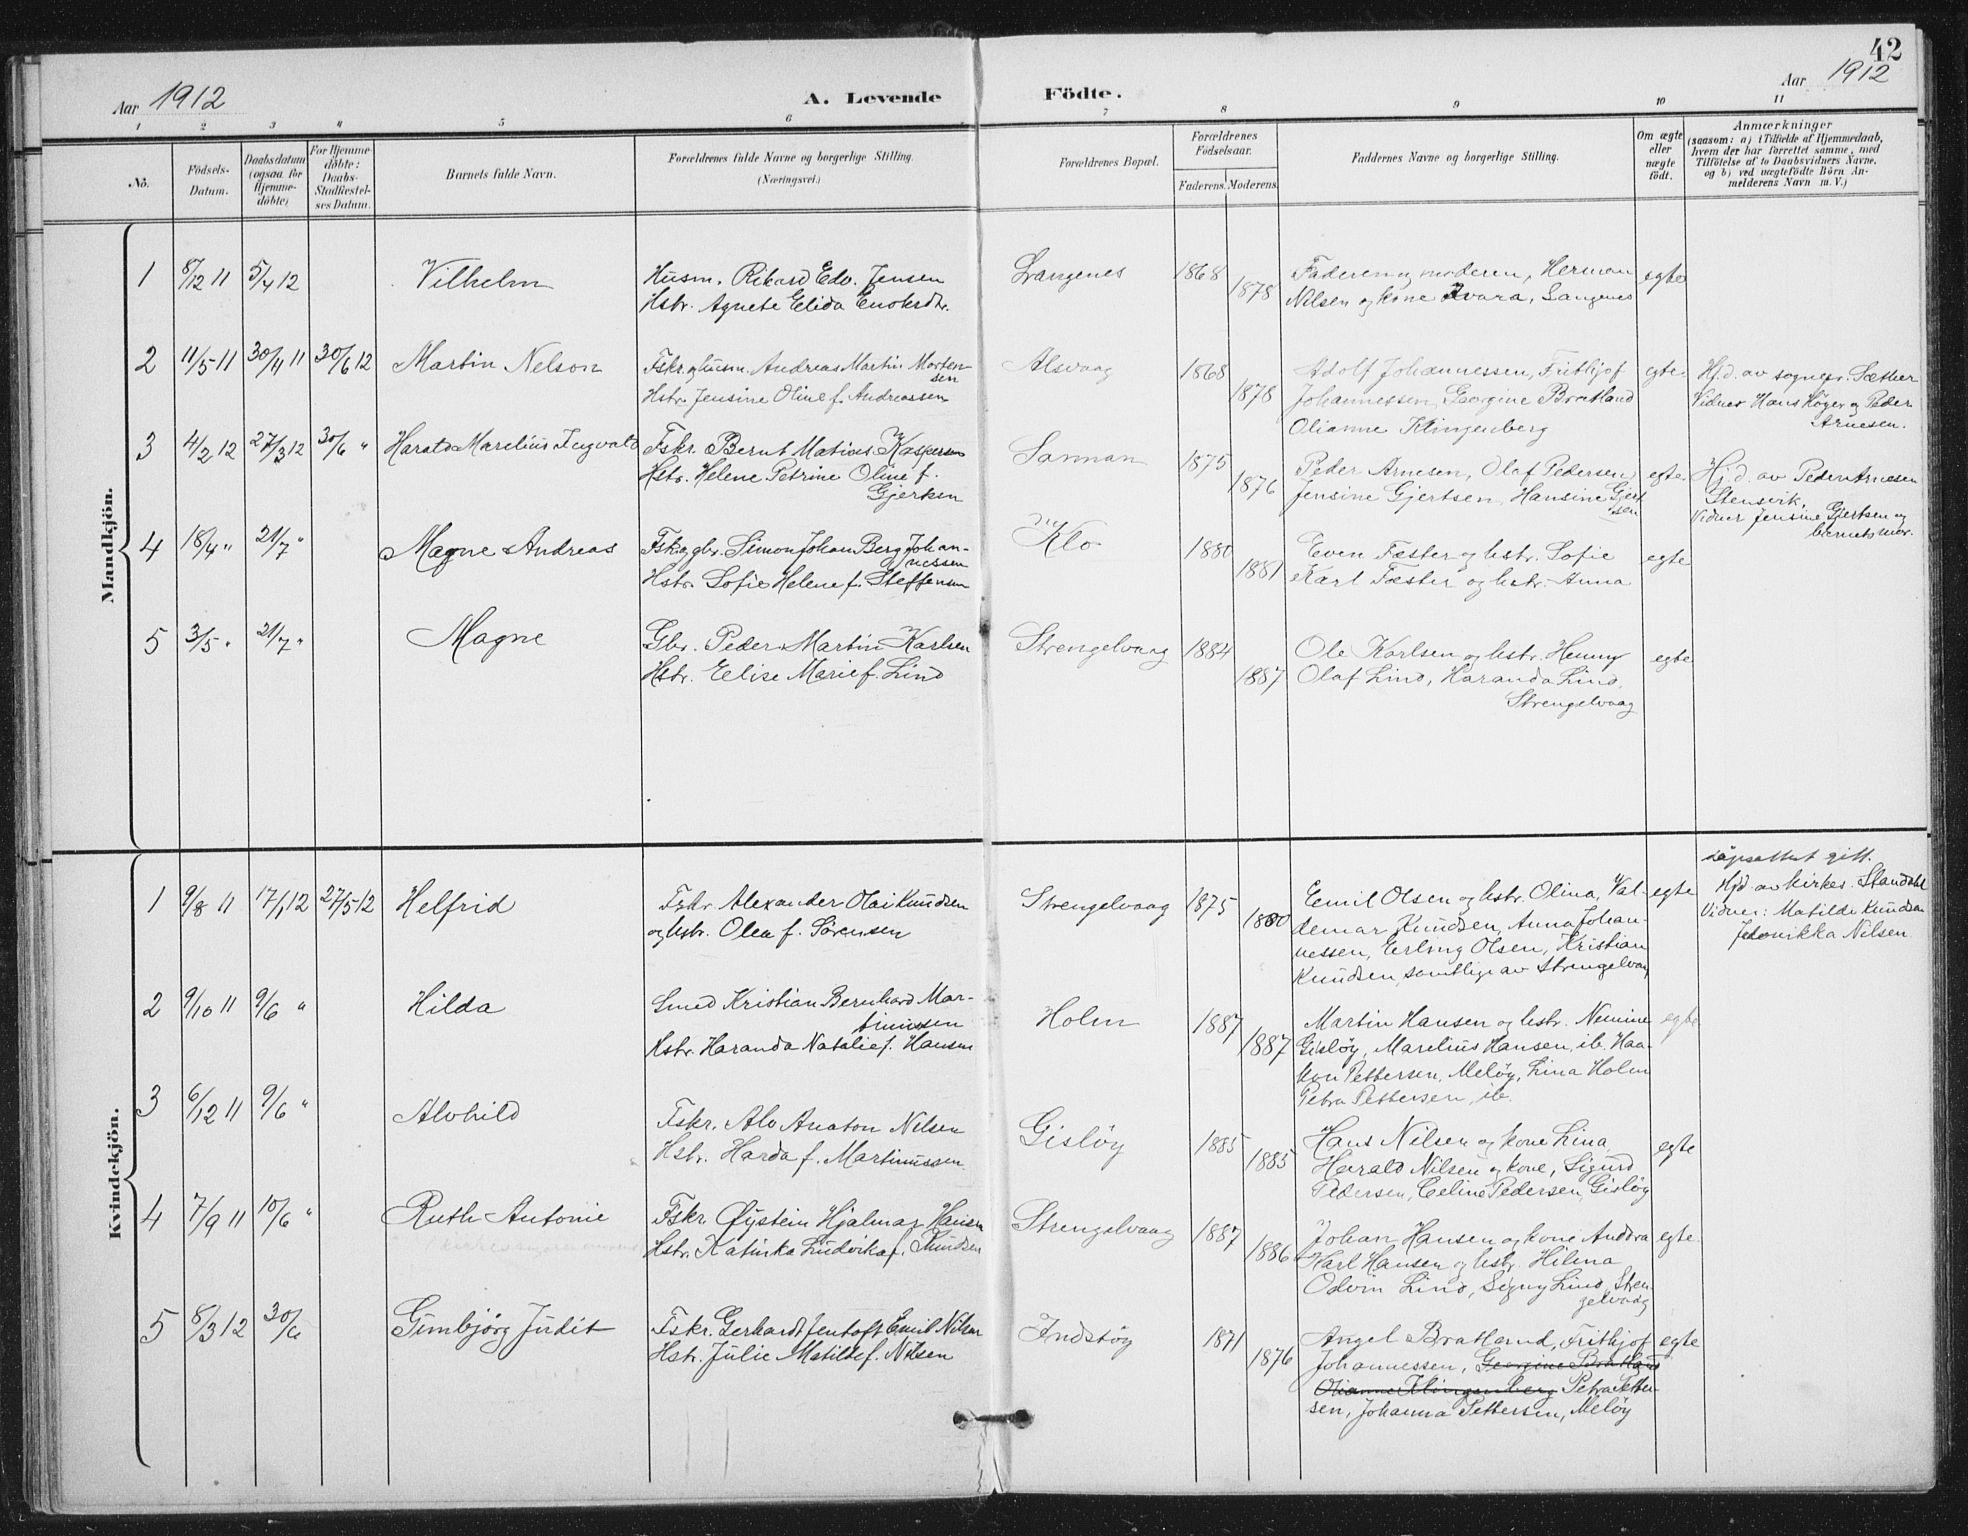 42
Aar 1912
A. Levende Födte.
Aar 1912
1 2 3 4 5 6 7 8 9 10 11
No.
Födsels-
Datum.
Daabsdatum
(ogsaa for
Hjemme-
döbte)
For Hjemme-
döbte:
Daabs-
Stadfæstel-
ses Datum.
Barnets fulde Navn.
Forældrenes fulde Navne og borgerlige Stilling.
(Næringsvei.)
Forældrenes Bopæl.
Forældrenes
Födselsaar.
Faderens. Moderens.
Faddernes Navne og borgerlige Stilling.
Om ægte
eller
uægte
födt.
Anmærkninger
(saasom: a) i Tilfælde af Hjemmedaab,
hvem der har forrettet samme, med
Tilföielse af to Daabsvidners Navne,
og b) ved uægtefödte Börn An-
melderens Navn m. V.)
Mandkjön.
1 8/12 11 5/4 12 Vilhelm
Husm. Rikard Edv. Jensen
Hstr. Agnete Elida Enoksdtr.
Langenes 1868 1878
Faderen og moderen, Herman
Nilsen og kone Svara, Langenes
egte
2 11/5 11 30/11 11 30/6 12 Martin Nelson
Fskr. og husm. Andreas Martin Morten-
sen
Hstr. Jensine Oline f. Andreassen
Alsvaag 1868 1878
Adolf Johannessen, Frithjof
Johannessen, Georgine Bratland
Olianne Klingenberg
egte
Hj.d. av sognepr. Sæther
Vidner Hans Höyer og Peder
Arnesen.
3 4/2 12 27/3 12 30/6 " Harald Marelius Ingvald
Fskr. Bernt Matias Kaspersen
Hstr. Helene Petrine Oline f.
Gjertsen
Sannan 1875 1876
Peder Arnesen, Olaf Pedersen,
Jensine Gjertsen, Hansine Gjert
sen
egte
Hj.d. av Peder Arnesen
Stensvik,
Vidner Jensine Gjertsen og
barnets mor.
4 18/4 " 21/7 " Magne Andreas
Fsk. og gbr. Simon Johan Berg Johan-
nessen
Hstr. Sofie Helene f. Steffensen
Klo 1880 1881
Even Fæster og hstr. Sofie
Karl Fæster og hstr. Anna
egte
5 3/5 " 21/7 " Magne
Gbr. Peder Martin Karlsen
Hstr. Elise Marie f. Lind
Strengelvaag 1884 1887
Ole Karlsen og hstr. Henny
Olaf Lind, Haranda Lind,
Strengelvaag
egte
Kvindekjön.
1 9/8 11 17/1 12 27/5 12 Helfrid
Fskr. Alexander Olai Knudsen
og hstr. Olea f. Sörensen
Strengelvaag 1875 1880
Emil Olsen og hstr. Olina, Val-
demar Knudsen, Anna Johan-
nessen, Erling Olsen, Kristian
Knudsen, samtlige av Strengelvaag
egte
gift.
Hjd. av kirkes. Standahl
Vidner: Matilde Knudsen
Nilsen
2 9/10 11 9/6 " Hilda
Smed Kristian Bernhard Mar-
tinussen
Hstr. Haranda Natalie f. Hansen
Holm 1887 1887
Martin Hansen og hstr. Nemine
Gislöy, Marelius Hansen, ib. Haa-
kon Pettersen, Melöy, Lina Holm
Petra Pettersen, ib.
egte
3 6/12 11 9/6 " Alvhild
Fskr. Alv Anaton Nilsen
Hstr. Harda f. Martinussen
Gislöy 1885 1885
Hans Nilsen og kone Lina
Harald Nilsen og kone, Sigurd
Pedersen, Celine Pedersen, Gislöy
egte
4 7/9 11 10/6 " Ruth Antonie
Fskr. Øystein Hjalmar Hansen
Hstr. Katinka Ludvika f. Knudsen
Strengelvaag 1887 1886
Johan Hansen og kone Anddra
Karl Hansen og hstr. Hilma
Odvin Lind, Signy Lind, Stren
gelvaag
egte
5 8/3 12 30/6 Gunbjörg Judit
Fskr. Gerhardt Jentoft Emil Nilsen
Hstr. Julie Matilde f. Nilsen
Indstöy 1871 1876
Angel Bratland, Frithjof
Johannessen, Georgine Bratland
Olianne Klingenberg Petra Petter-
sen, Johanna Pettersen, Melöy
egte